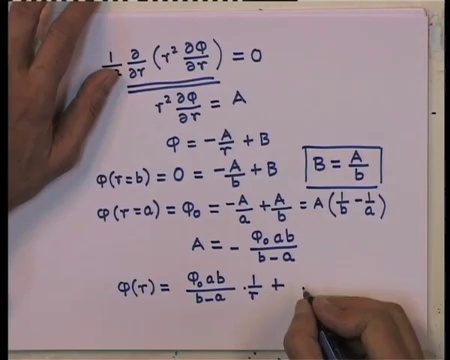 1/r² ∂/∂r (r² ∂φ/∂r) = 0
r² ∂φ/∂r = A
φ = -A/r + B
φ(r=b) = 0 = -A/b + B    B = A/b
φ(r=a) = φ₀ = -A/a + A/b = A(1/b - 1/a)
A = - φ₀ab/b-a
φ(r) = φ₀ab/b-a · 1/r +